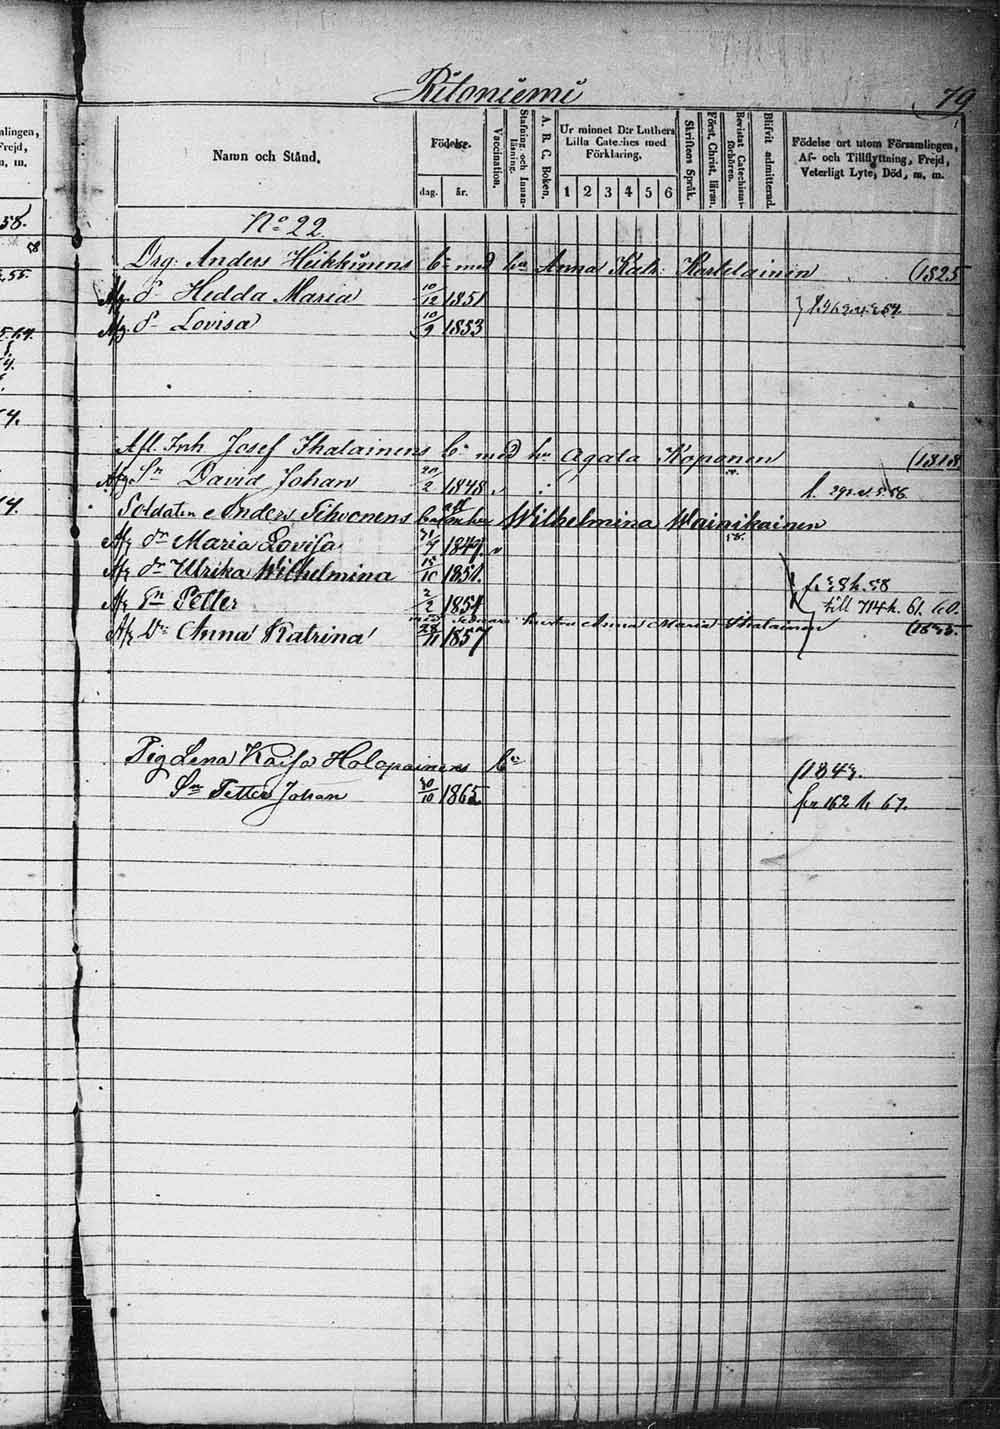 Ritoniemi
79
Namn och Stånd.
Födelse.
dag.
år.
Vaccination.
Stafning och Innan-
läsning.
A. B. C. Boken.
Ur minnet D:r Luthers
Lilla Cateches med
Förklaring.
1 2 3 4 5 6
Skriftens Språk.
Först. Christ. läran.
Bevistat Catechismi-
förhören.
Blifvit admitterad.
Födelse ort utom Församlingen,
Af- och Tillflyttning, Frejd,
Veterligt Lyte, Död, m. m.
No 22
Drg: Anders Heikkinens b:n med hu Anna Katr: Kartelainen (1825
Afg. d. Hedda Maria 10/12 1851
Afg. d. Lovisa 10/9 1853
Afl. Inh Josef Ihalainens b:n med hu Agata Koponen (1818
Afg Sn David Johan 20/2 1848
Soldaten Anders Tihvonens hu Wilhelmina Wainikainen
Afg dr Maria Lovisa 1847
Afg dr Ulrika Wilhelmina 15/10 1851
fr 38 h. 58
Afg Sn Petter 2/2 1854
till 714 h. 61.
hustru Anna Maria Ihalainen
Afg dr Anna Katrina 28/11 1857
Pig Lena Kajsa Holopainens bn
(1843.
Sn Petter Johan 30/10 1865
fr 162 h 67.